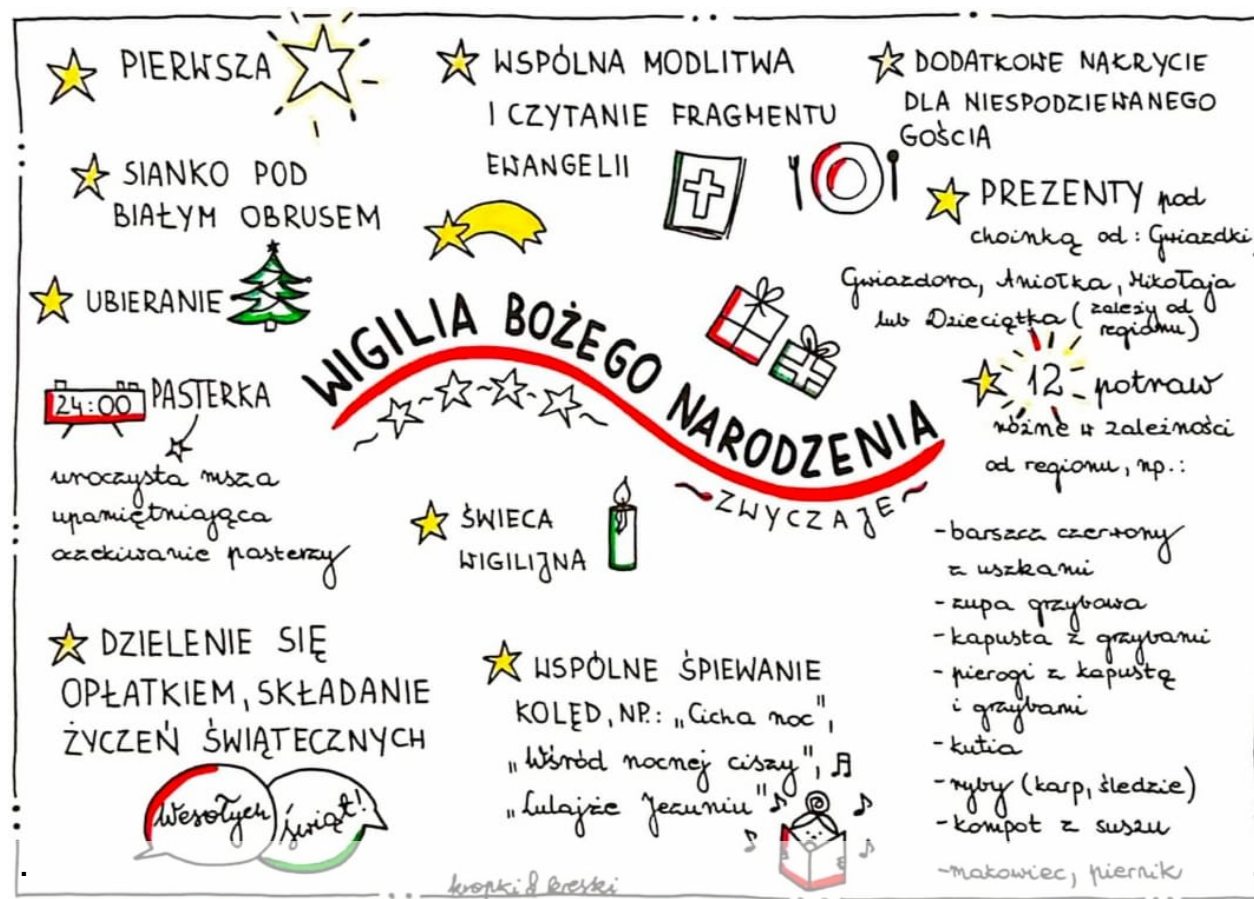 PIERWSZA
SIANKO POD
BIAŁYM OBRUSEM
UBIERANIE
24:00 PASTERKA
uroczysta msza
upamiętniająca
oczekiwanie pasterzy
DZIELENIE SIĘ
OPŁATKIEM, SKŁADANIE
ŻYCZEŃ ŚWIĄTECZNYCH
Wesołych świąt!
WSPÓLNA MODLITWA
I CZYTANIE FRAGMENTU
EWANGELII
WIGILIA BOŻEGO NARODZENIA
~ZWYCZAJE~
ŚWIECA
WIGILIJNA
WSPÓLNE ŚPIEWANIE
KOLĘD, NP.: „Cicha noc",
„Wśród nocnej ciszy",
„Lulajże Jezuniu"
kropki & kreski
DODATKOWE NAKRYCIE
DLA NIESPODZIEWANEGO
GOŚCIA
PREZENTY pod
choinką od: Gwiazdki,
Gwiazdora, Aniołka, Mikołaja
lub Dzieciątka (zależy od
regionu)
12 potraw
różne w zależności
od regionu, np.:
- barszcz czerwony
z uszkami
- zupa grzybowa
- kapusta z grzybami
- pierogi z kapustą
i grzybami
- kutia
- ryby (karp, śledzie)
- kompot z suszu
- makowiec, piernik